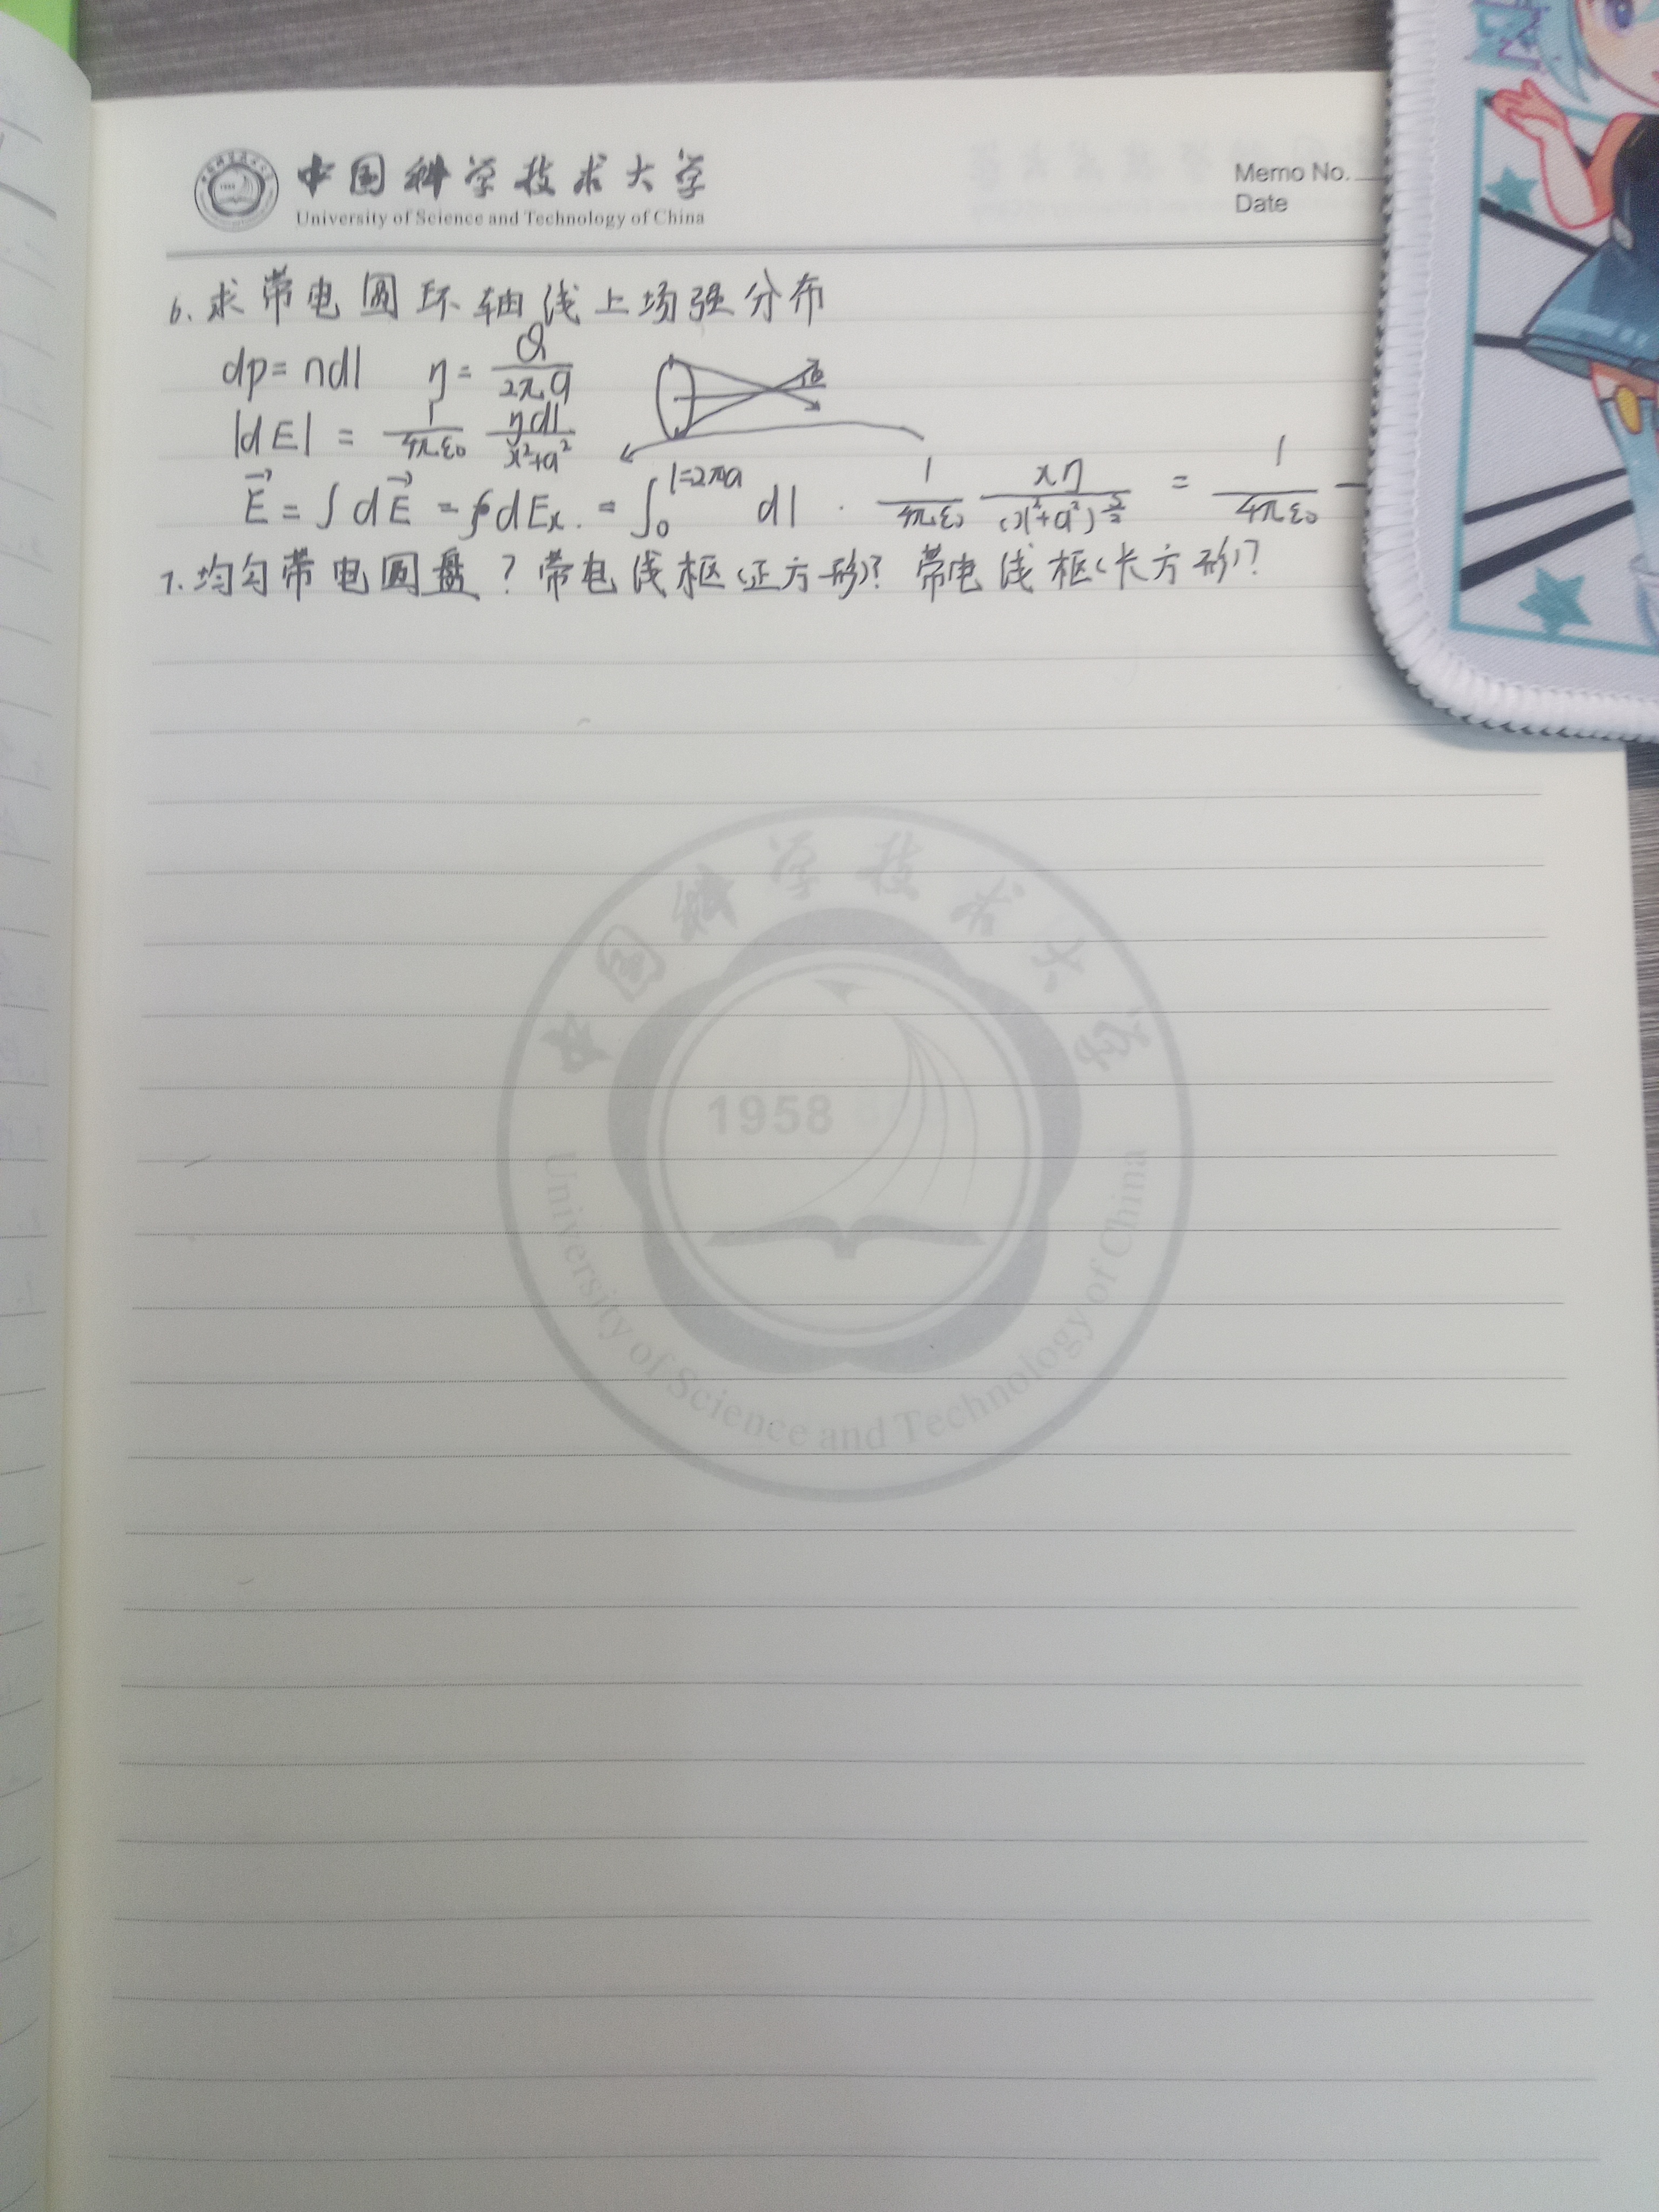 中国科学技术大学
University of Science and Technology of China
Memo No.
Date
6. 求带电圆环轴线上场强分布
dp = ηdl  η = Q/(2πa)
|dE| = 1/(4πε₀) ηdl/(x²+a²)
E⃗ = ∫dE⃗ = ∮dEₓ = ∫₀^(l=2πa) dl · 1/(4πε₀) xη/(x²+a²)^(3/2) = 1/(4πε₀)
7. 均匀带电圆盘？带电线框(正方形)？带电线框(长方形)？
中国科学技术大学
1958
University of Science and Technology of China